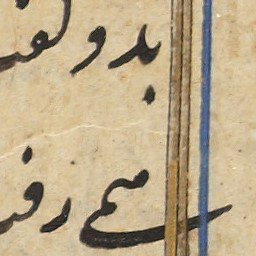 بدو گفت
همی رفت